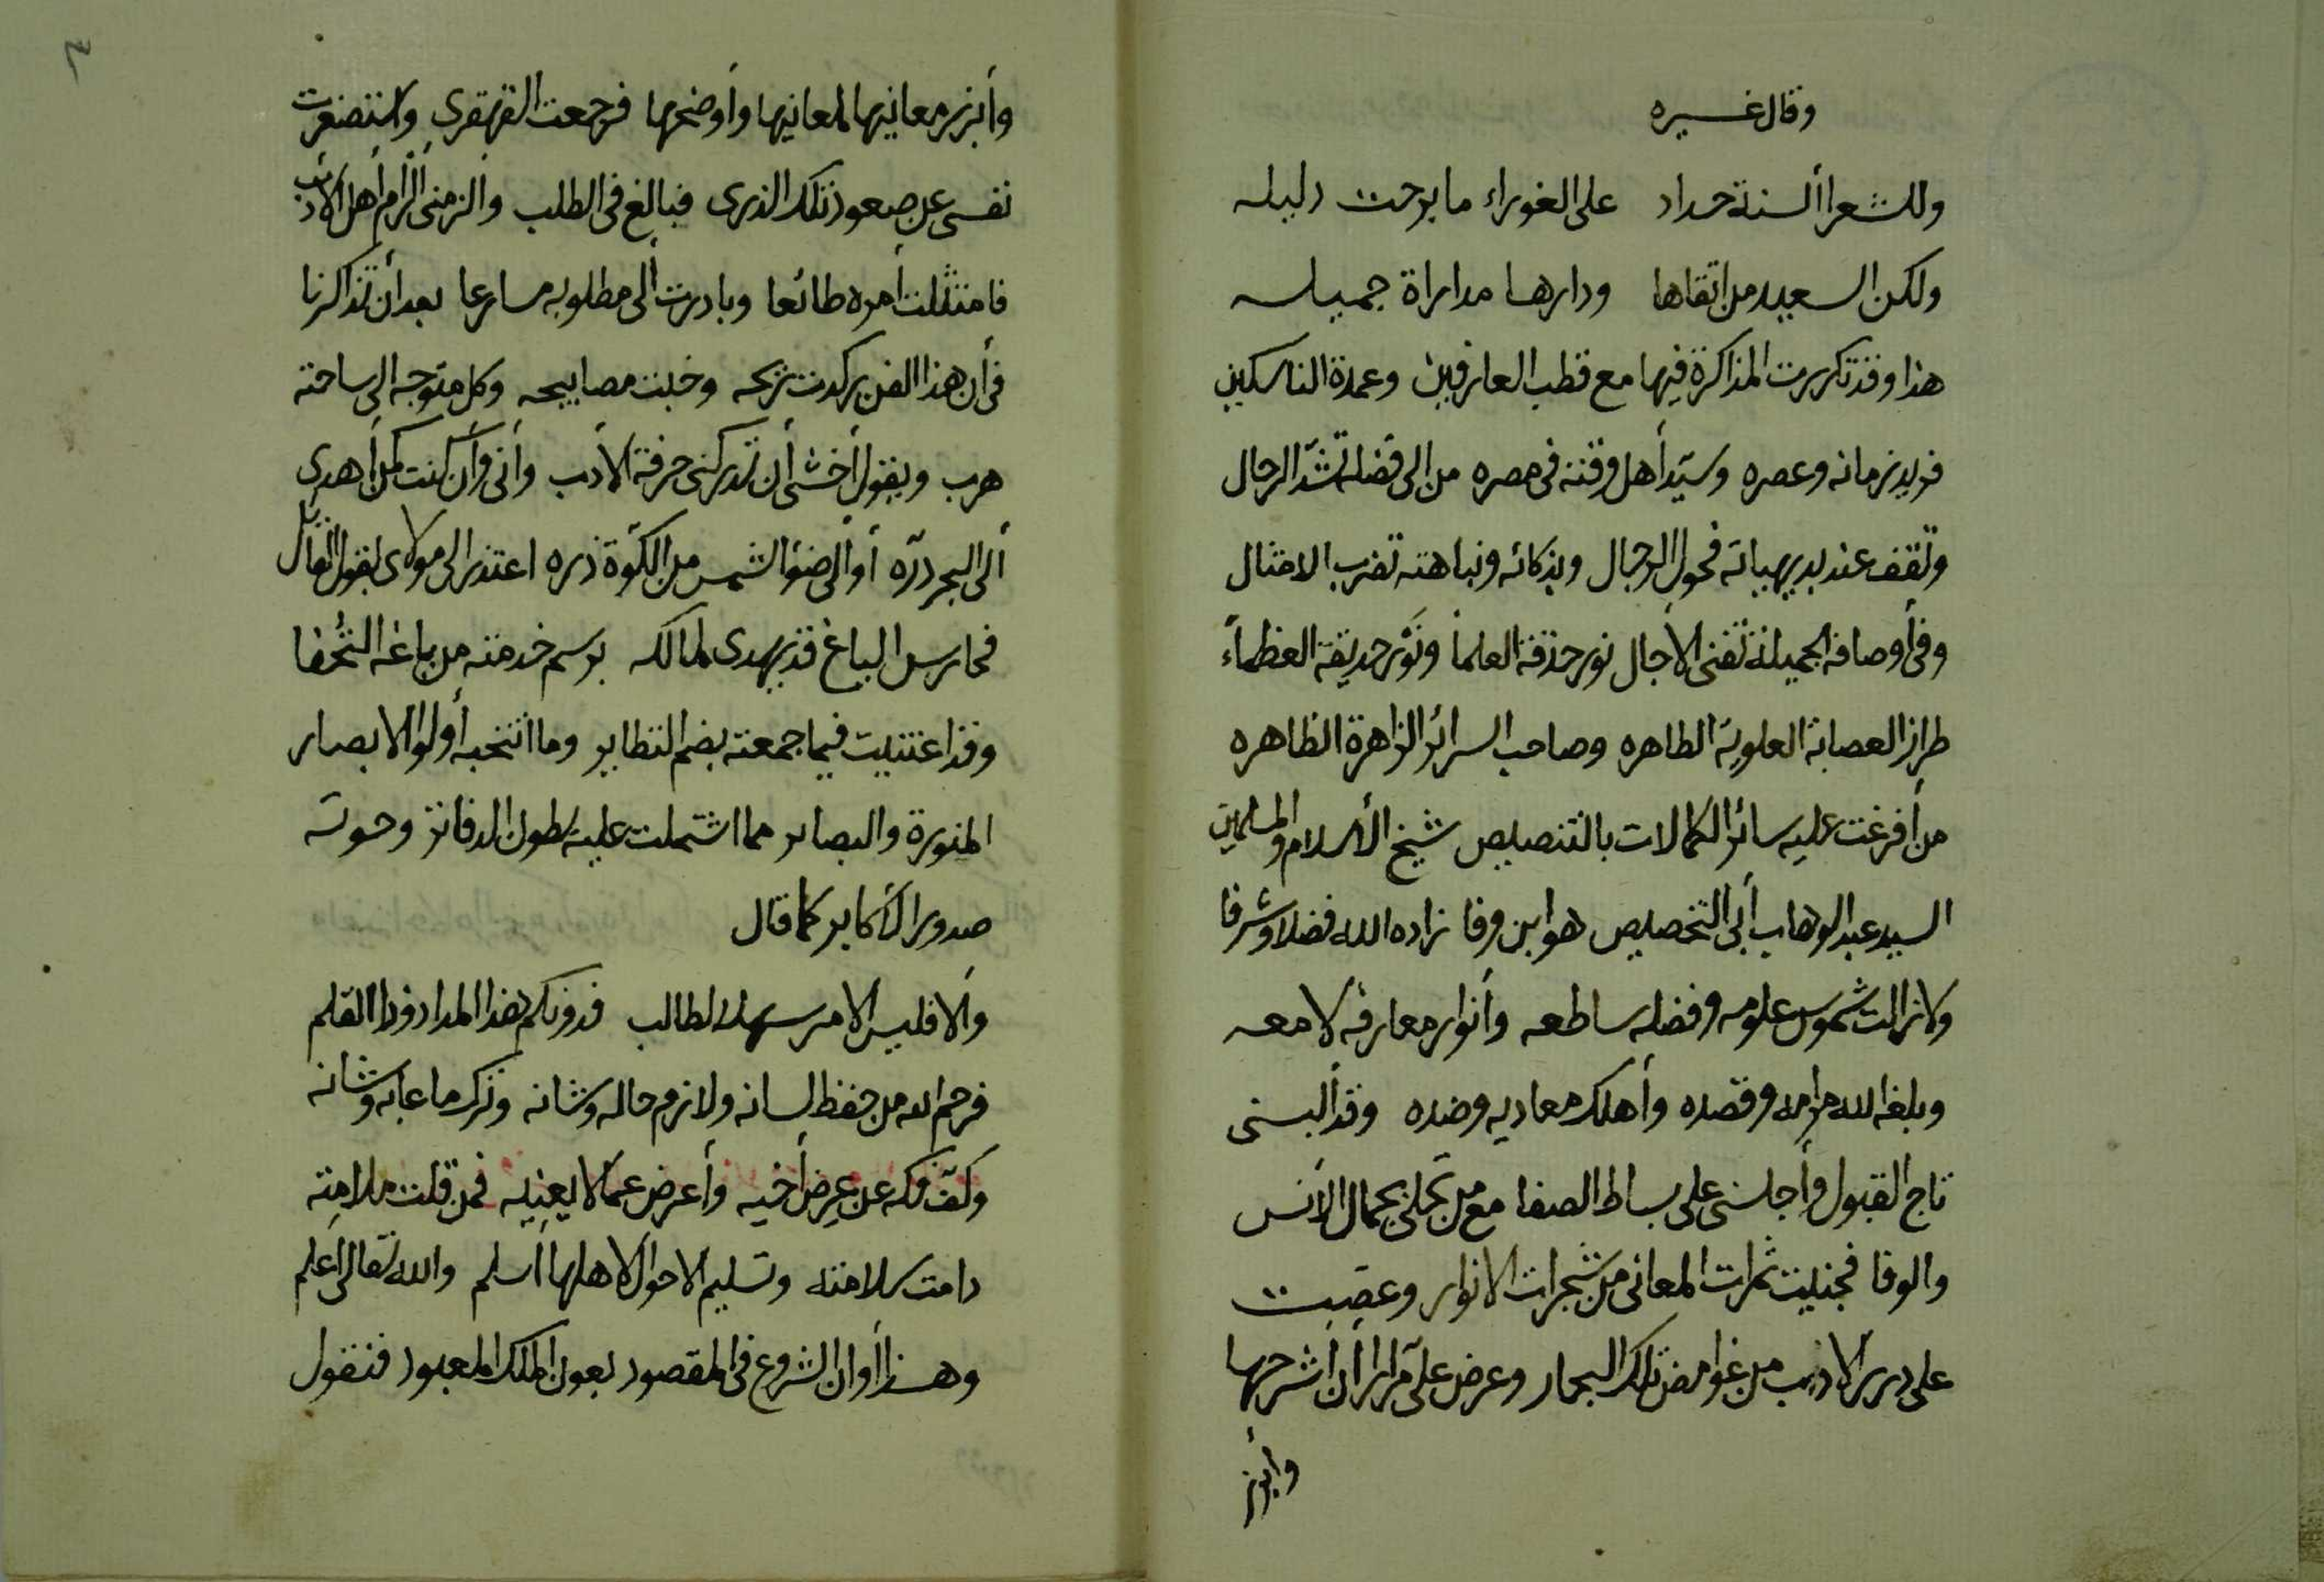 وقال غيره
وللشعرا ألسنة حداد على العوراء ما برحت دليله
ولكن السعيد من اتقاها ودارها مداراة جميله
هذا وقد تكررت المذاكرة فيها مع قطب العارفين وعمدة الناسكين
فريد زمانه وعصره وسيّد أهل وقته في مصره من الى فضله تشدّ الرحال
وتقف عند بديهياته فحول الرجال وبذكائه ونباهته تضرب الامثال
وفي أوصافه الجميلة تفنى الاجال نور حدقة العلماً ونَوْر حديقة العظماًء
طراز العصابة العلوية الطاهره وصاحب السرائر الزاهرة الظاهره
من أفرغت عليه سائر الكمالات بالتنصيص شيخ الأسلام والمسلمين
السيد عبد الوهاب أبى التخصيص هو ابن وفا زاده الله فضلا وشرفا
ولا زالت شموس علومه وفضله ساطعه وأنوار معارفه لامعه
وبلغه الله مرامه وقصده وأهلك معاديه وضده وقد ألبسنى
تاج القبول وأجلسنى على بساط الصفا مع من تحلى بجمال الأنس
والوفا فجنيت ثمرات المعانى من شجرات الانوار وغصت
على درر الادب من غوامض تلك البحار وعرض علىّ مرارا أن أشرحها
وأبرز
٣
وأبرز معانيها لمعانيها وأوضحها فرجعت القهقرى واستصغرت
نفسى عن صعود تلك الذرى فبالغ فى الطلب والزمنى ألزام أهل الأدب
فامتثلت أمره طائعا وبادرت ألى مطلوبه مسارعا بعد أن تذاكرنا
فى أن هذا الفن ركدت ريحه وخبت مصابيحه وكل متوجه الى ساحته
هرب ويقول أخشى أن تدركنى حرفة الأدب وأنى وأن كنت كمن أهدى
ألى البحر درّه أو ألى ضوٴ الشمس من الكوّة ذره اعتذر الى مولاى بقول القائل
فحارس الباغ قد يهدى لمالكه برسم خدمته من باغه التُحَفا
وقد اعتنيت فيما جمعته بضم النظاير وما انتخبه أولوا الابصار
المنورة والبصاير مما اشتملت عليه بطون الدفاتر وحوته
صدور الأكابر كما قال
وألا فليس الامر سهلا لطالب فدونكم هذا المداد وذا القلم
فرحم الله من حفظ لسانه ولازم حاله وشانه وترك ما عابه وشانه
وكفّ فكه عن عِرض أخيه وأعرض عما لا يعنيه فمن قلت ملامته
دامت سلامته وتسليم الاحوال لاهلها أسلم والله تعالى أعلم
وهذا أوان الشروع فى المقصود بعون الملك المعبود فنقول